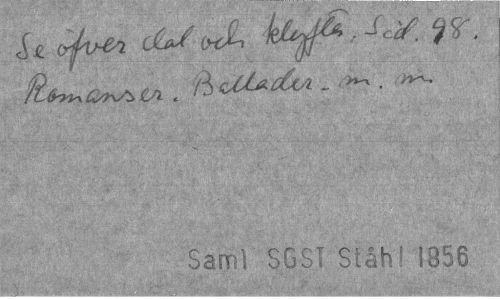 Se öfver dal och klyfta. Sid. 98.
Romanser. Ballader. m. m.
Saml SGST Ståhl 1856